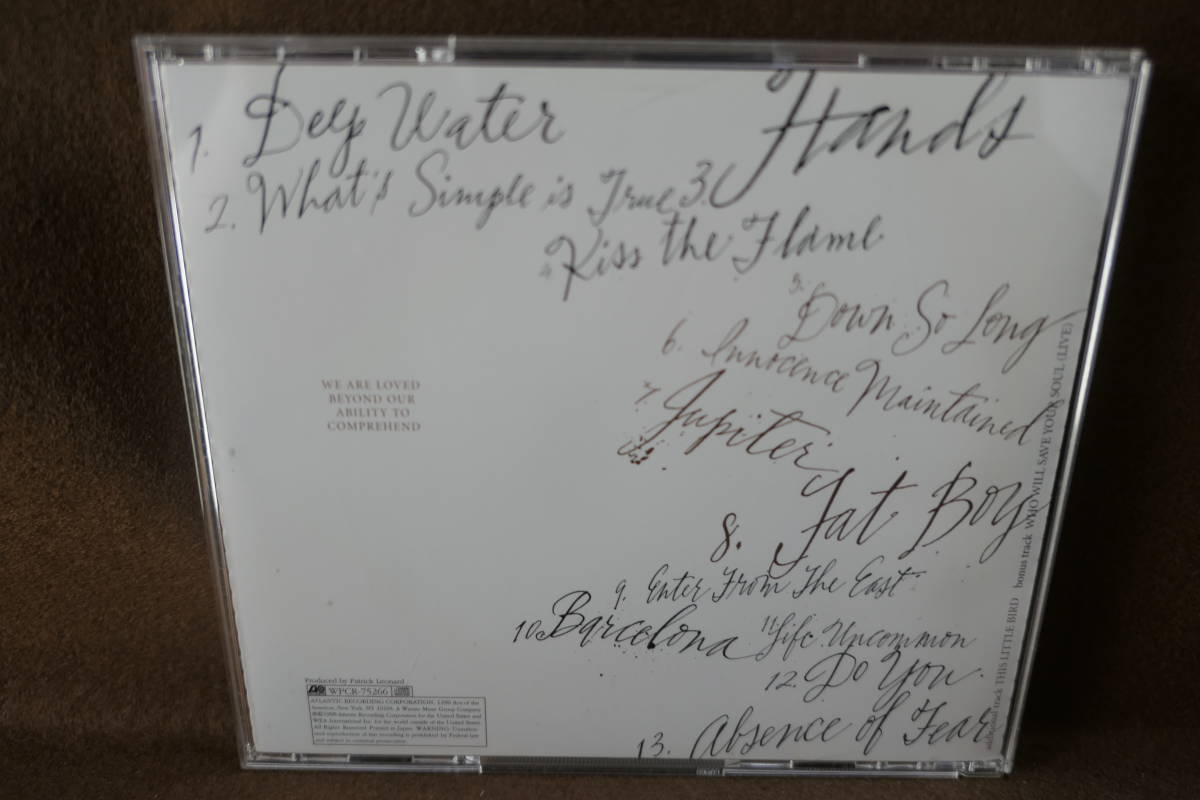 1. Deep Water
2. What's Simple is True
3. Hands
4. Kiss the Flame
5. Down So Long
6. Innocence Maintained
7. Jupiter
8. Fat Boy
9. Enter From The East
10. Barcelona
11. Life Uncommon
12. Do You
13. Absence of Fear
additional track THIS LITTLE BIRD bonus track WHO WILL SAVE YOUR SOUL (LIVE)
WE ARE LOVED
BEYOND OUR
ABILITY TO
COMPREHEND
Produced by Patrick Leonard
WPCR-75266
ATLANTIC RECORDING CORPORATION, 1290 Ave of the
Americas, New York, NY 10104. A Warner Music Group Company
Atlantic Recording Corporation for the United States and
WEA International Inc. for the world outside of the United States.
All Rights Reserved. Printed in Japan. WARNING: Unauthorized
reproduction of this recording is prohibited by Federal law
and subject to criminal prosecution.